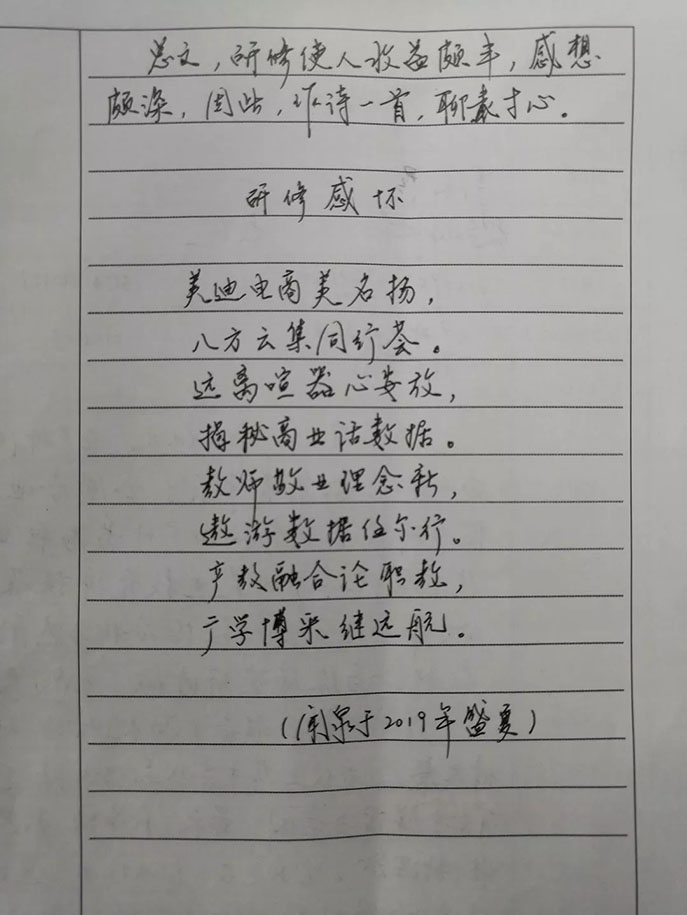 总之，研修使人收益颇丰，感想
颇深，因此，作诗一首，聊表寸心。
研修感怀
美迪电商美名扬，
八方云集同行荟。
远离喧嚣心安放，
揭秘商业话数据。
教师敬业理念新，
遨游数据任尔行。
产教融合论职教，
广学博采继远航。
（闲泉于2019年盛夏）